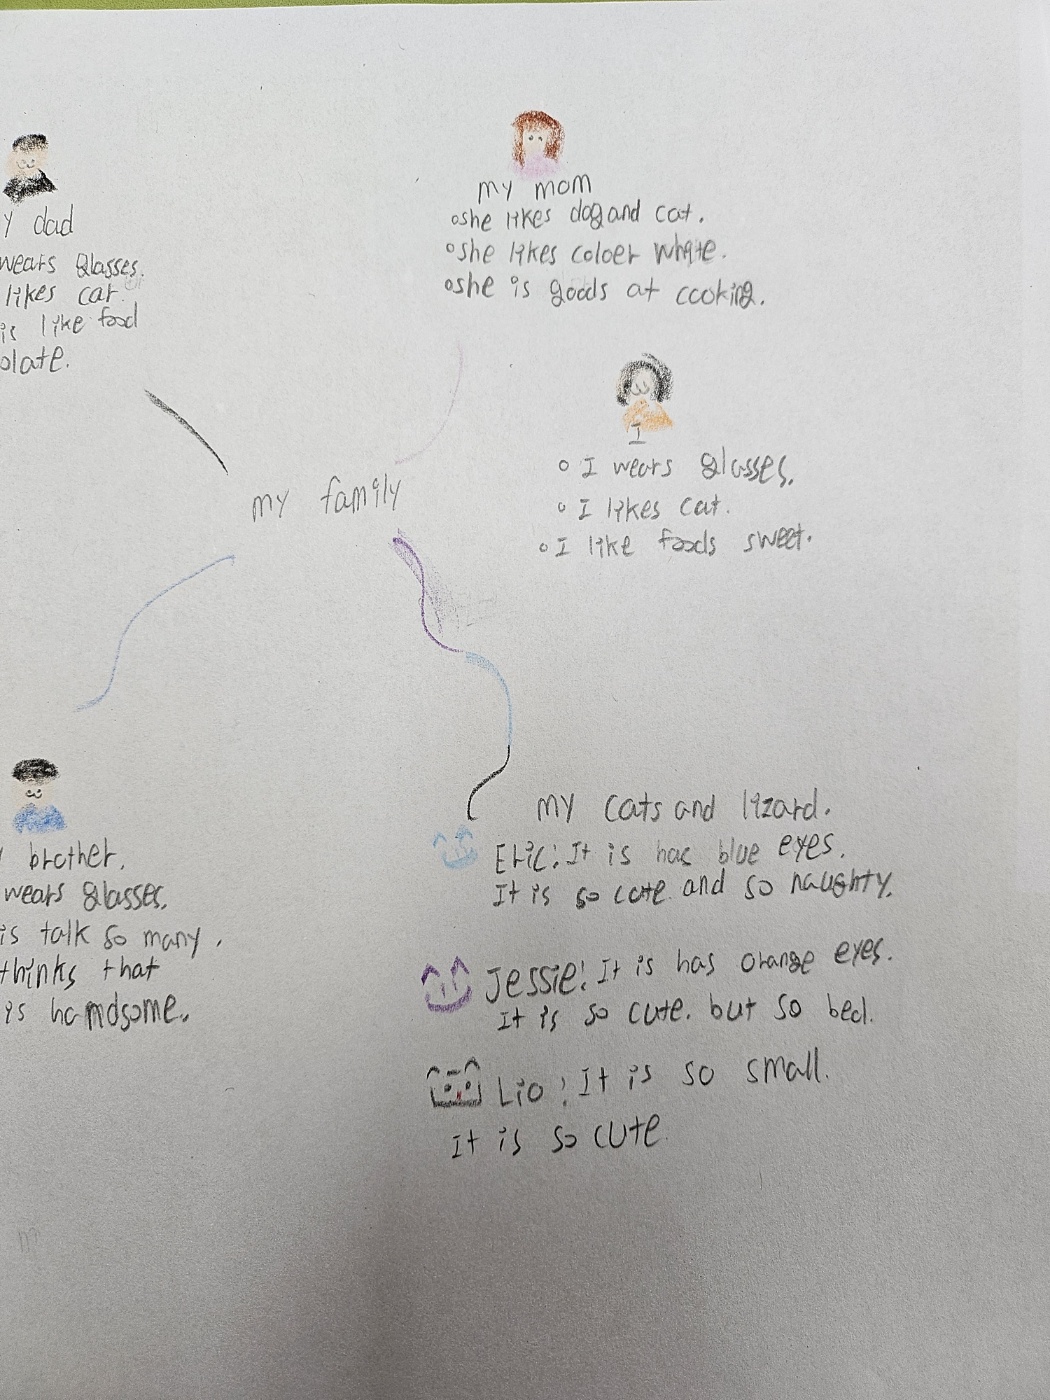 my mom
she likes dog and cat.
she likes coloer white.
she is goods at cooking.
Y dad
wears glasses.
likes cat.
is like food
olate.
I
I wears glasses.
I likes cat.
I like foods sweet.
my family
brother.
wears glasses.
is talk so many.
thinks that
is handsome.
my cats and lizard.
Eric: It is has blue eyes.
It is so cute and so naughty.
Jessie: It is has orange eyes.
It is so cute. but so bed.
Lio: It is so small.
It is so cute